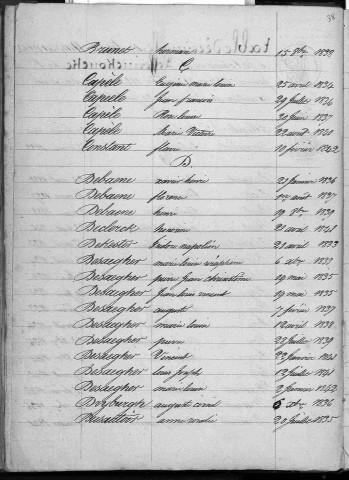 38
Brunet herman 15 8bre 1838
C
Capéle Eugénie marie louise 25 avril 1834
Capéele jean francois 29 juillet 1836
Capéle Rose louise 20 juin 1837
Capéle Marie Victoire 22 aout 1840
Constant flore 10 février 1842
D.
Debaene xavier henri 21 janvier 1836
Debaene florence 1837
Debaene henri 19 8bre 1839
Declerck 21 avril 1841
Dekester isidore napoléon 21 avril 1833
Desaegher marie louise séraphine 6 xbre 1833
Desaegher jean christian 19 mai 1835
Desaegher jean louis vincent 19 mai 1835
Desaegher auguste 7 février 1837
Desaegher marie louise 12 avril 1838
Desaegher pierre 25 juillet 1839
Desaegher Vincent 22 janvier 1841
Desaegher louis joseph 12 juillet 1841
Desaegher louise 2 février 1842
auguste 6 xbre 1836
20 juillet 1835